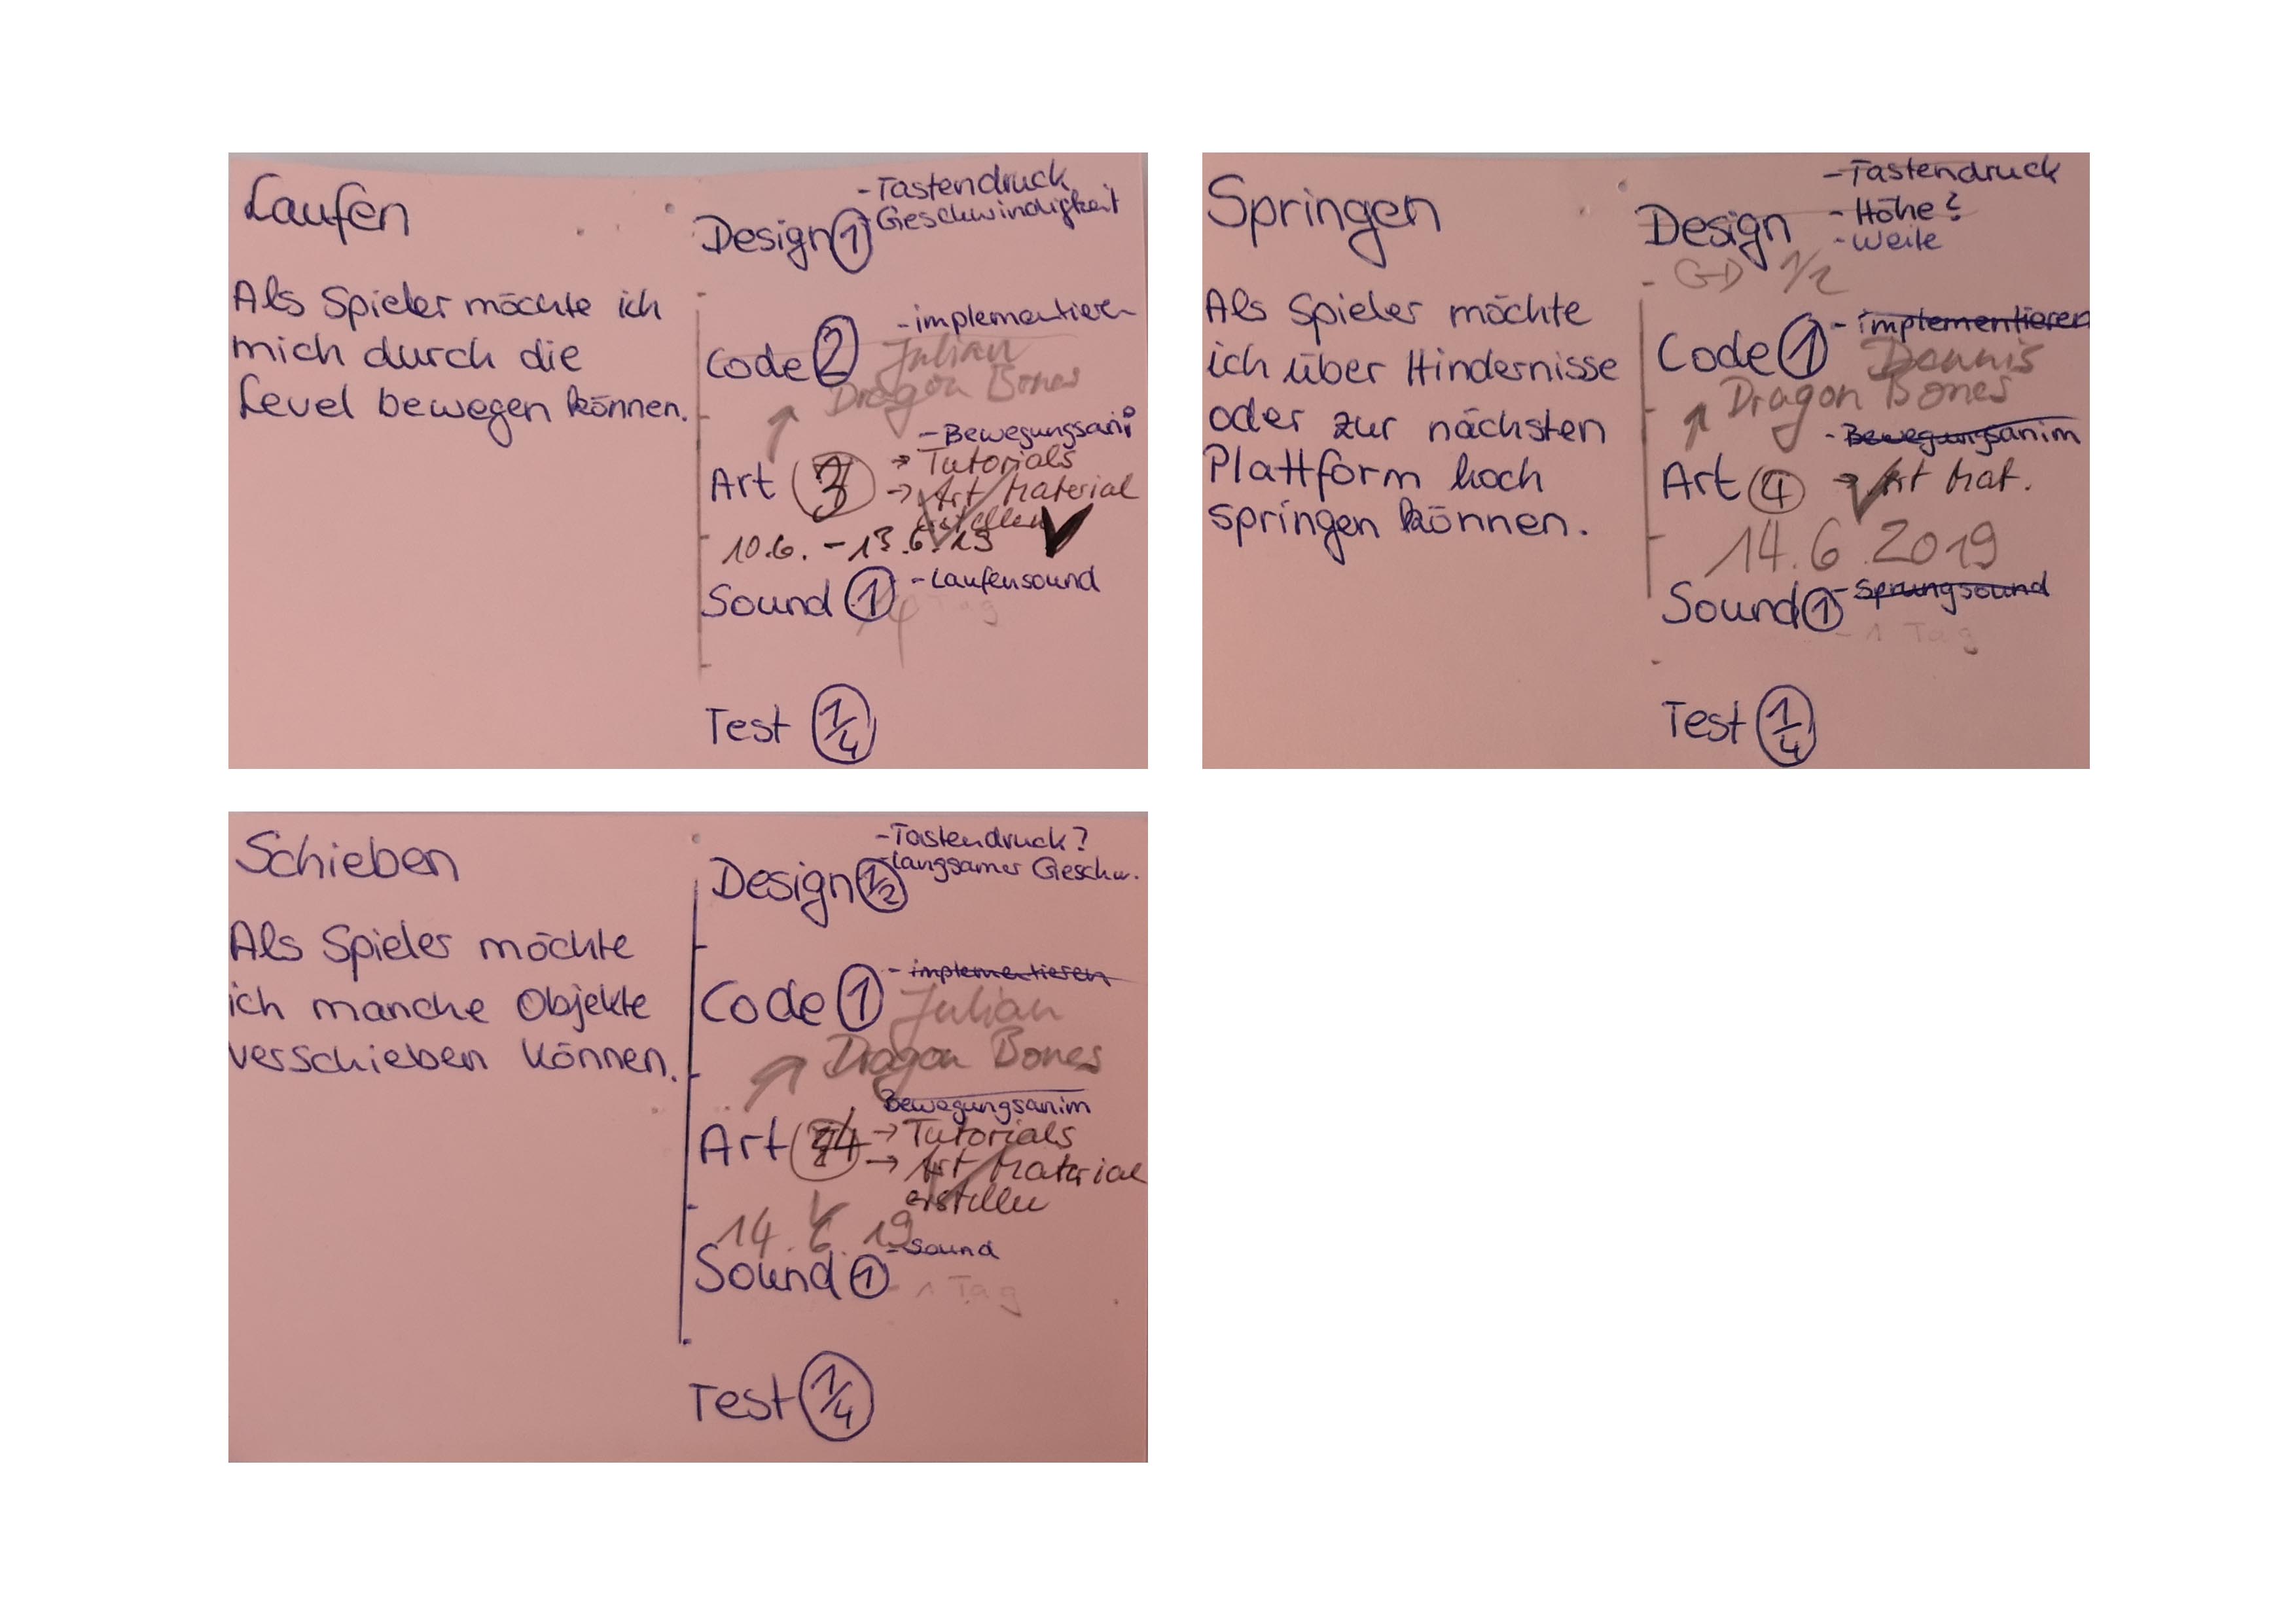 Laufen
Als Spieler möchte ich
mich durch die
Level bewegen können.
- Tastendruck
Geschwindigkeit
Design 1
- implementieren
Code 2
Julian
Dragon Bones
- Bewegungsani
→ Tutorials
Art 3
→ Art Material
erstellen
10.6. - 13.6.19
Sound 1 - Laufensound
Test 1/4
Springen
Als Spieler möchte
ich über Hindernisse
oder zur nächsten
Plattform hoch
springen können.
- Tastendruck
- Höhe?
- Weite
Design
GD 1/2
- implementieren
Code 1
Dennis
Dragon Bones
- Bewegungsanim
Art 4 → Art Mat.
14.6.2019
Sound 1 - Sprungsound
- 1 Tag
Test 1/4
Schieben
Als Spieler möchte
ich manche Objekte
verschieben können.
- Tastendruck?
- langsamer Geschw.
Design 1/2
- implementieren
Code 1
Julian
Dragon Bones
Bewegungsanim
→ Tutorials
Art
→ Art Material
erstellen
14.6.19
- Sound
Sound 1
- 1 Tag
Test 1/4